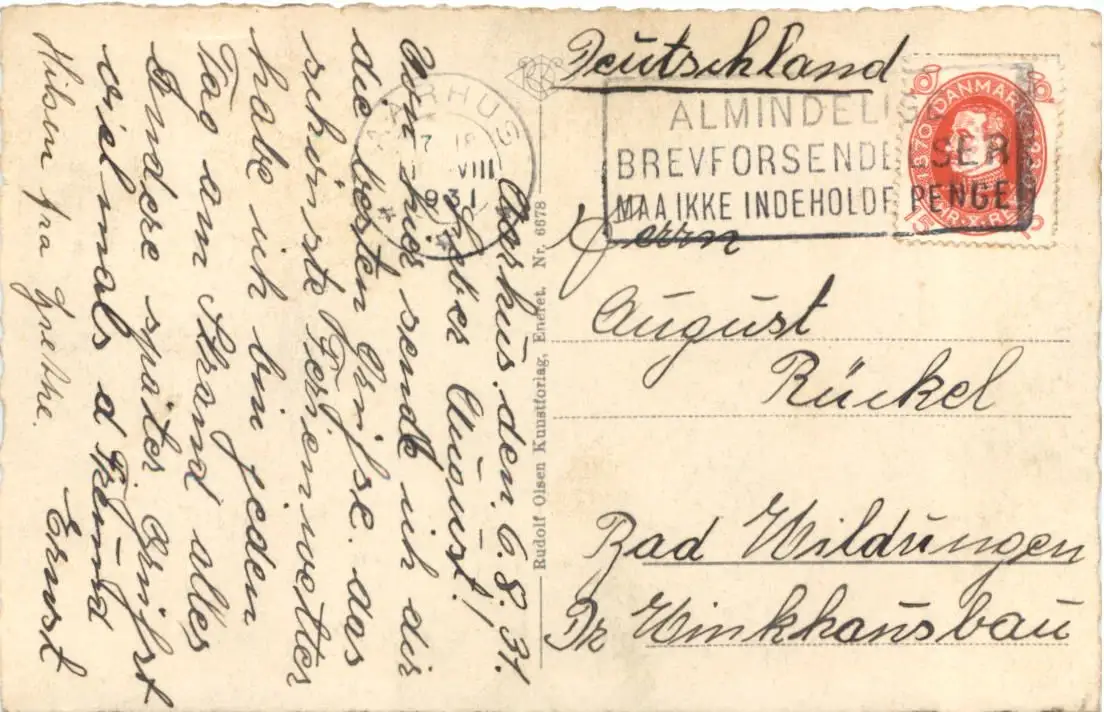 Aarhus, den. 6.8.31.
Lieber August!
Von hier sende ich dir
die besten Grüsse. das
schönste Ferienwetter
habe ich bin jeden
Tag am Strand alles
Andere später Grüsst
vielmals d Freund
Ernst
Hilsen fra Grethe.
Rudolf Olsen Kunstforlag, Eneret. Nr. 6678
AARHUS
7 18
VIII
931
ALMINDELI
BREVFORSENDELSER
MAA IKKE INDEHOLDE PENGE
DANMARK
1870
Deutschland
Herrn
August
Rückel
Bad Wildungen
Dr Winkhausbau